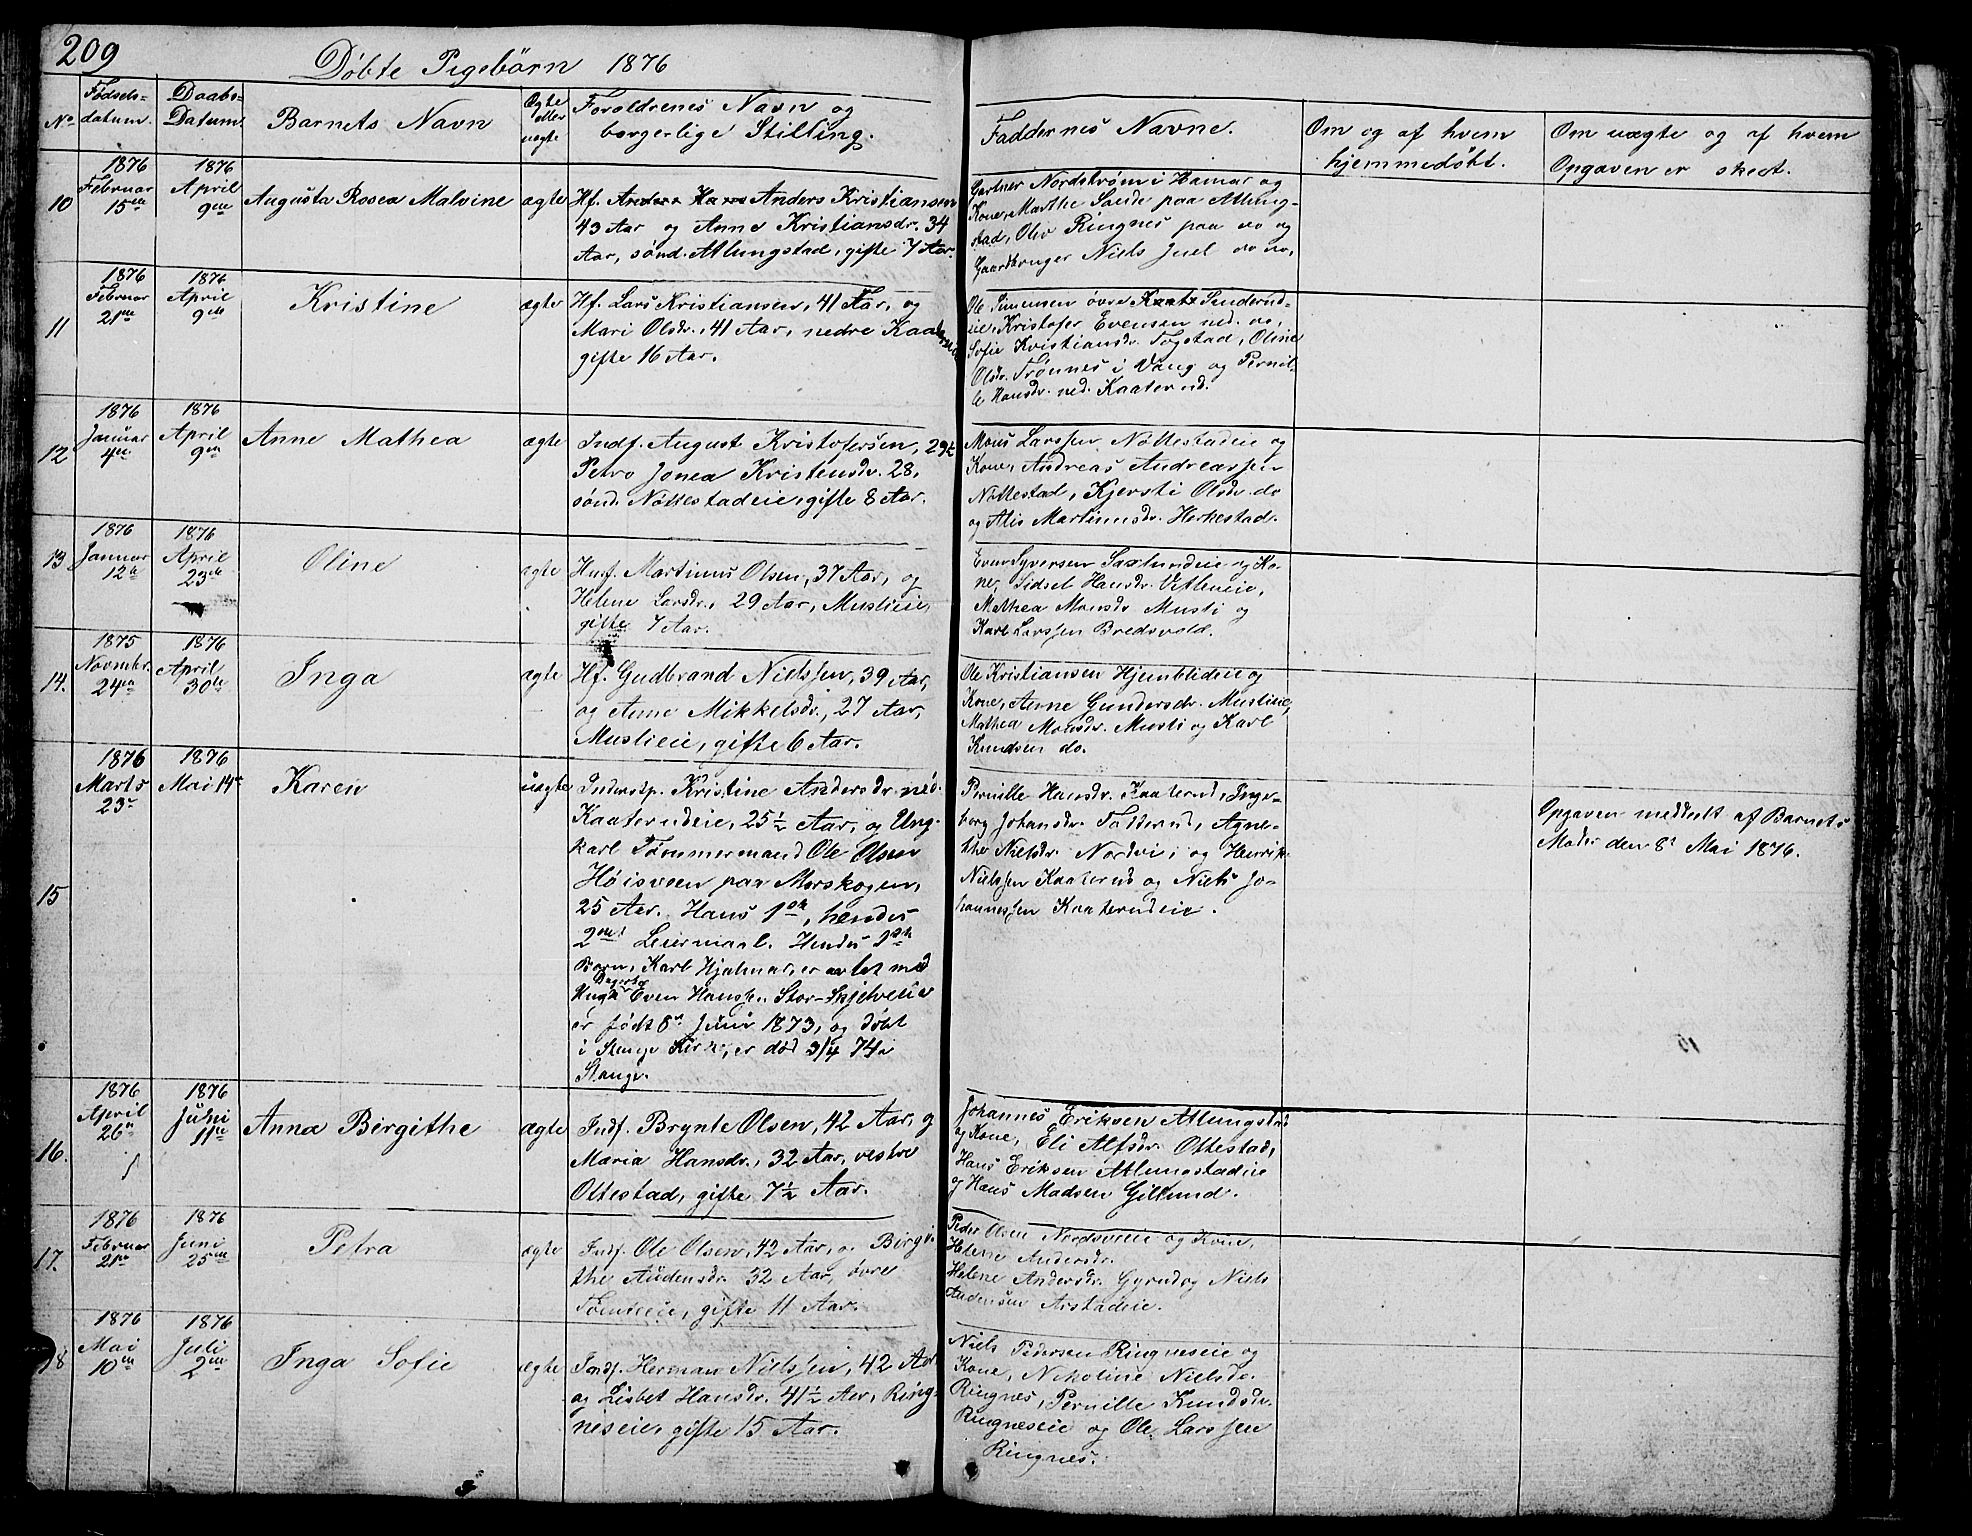 209
Døbte Pigebörn 1876
No
Fødsels-
datum.
Daabs-
Datum.
Barnets Navn
Ægte
eller
uægte
Forældrenes Navn og
borgerlige Stilling.
Faddernes Navne.
Om og af hvem
hjemmedøbt.
Om uægte og af hvem
Opgaven er skeet.
10
1876
Februar
15de
1876
April
9de
Augusta Rosea Malvine
ægte
Hf. Anders Hans Anders Kristiansen
43 Aar og Anne Kristiansdr. 34
Aar, sønd. Atlungstad, gifte 7 Aar.
Gartner Nordstrøm i Hamar og
Kone, Marthe Sande paa Atlung-
stad, Olev Ringnes paa do og
Gaardbruger Niels Juel do do,
11
1876
Februar
21de
1876
April
9de
Kristine
ægte
Hf. Lars Kristiansen, 41 Aar, og
Mari Olsdr., 41 Aar, nedre Kaaterud
gifte 16 Aar.
Ole Simensen øvre Sinderud-
eie, Kristofer Evensen ned. do,
Sofie Kristiansdr. Togstad, Oline
Olsdr. Trønnes i Vang og Pernil-
le Hansdr. ned. Kaaterud.
12
1876
Januar
4de
1876
April
9de
Anne Mathea
ægte
Indf. August Kristofersen, 29½
Petro Jonea Kristensdr. 28,
sønd. Nøttestadeie, gifte 8 Aar.
Mons Larssen Nøttestadeie og
Kone, Andreas Andreassen
Nøttestad, Kjersti Olsdr. do
og Alis Martinusdr. Horkestad.
13
1876
Januar
12te
1876
April
23de
Oline
ægte
Husf. Martinus Olsen, 37 Aar, og
Helene Larsdr., 29 Aar, Muslieie,
gifte 7 Aar.
Even Syversen Saxlundeie og Ko-
ne, Sidsel Hansdr. Vetleeie,
Mathea Monsdr. Musli og
Karl Larssen Bredsvold.
14.
1875
Novmbr.
24de
1876
April
30te
Inga
ægte
Hf. Gudbrand Nielssen, 39 Aar,
og Anne Mikkelsdr., 27 Aar,
Muslieie, gifte 6 Aar.
Ole Kristiansen Hjemblideie og
Kone, Anne Gundersdr. Muslieie,
Mathea Monsdr. Musli og Karl
Knudsen do.
15
1876
Marts
23de
1876
Mai 14de
Karen
uægte
Inderstp. Kristine Andersdr. ned.
Kaaterudeie, 25½ Aar, og Ung-
karl Tømmermand Ole Olsen
Høisveen paa Morskogen,
25 Aar. Hans 1ste, hendes
2det Leiermaal. Hendes 1ste
Barn, Karl Hjalmar, er avlet med
Ungk Even Hanssen Stor-Skjelveeie
er født 8de Juni 1873, og døbt
i Stange Kirke, er død 3/4 74 i
Stange.
Pernille Hansdr. Kaaterud, Inge-
borg Johansdr. Tofterud, Agne-
the Nielsdr. Nordvi, og Henrik
Nielssen Kaaterud og Niels Jo-
hannessen Kaaterudeie.
Opgaven meddeelt af Barnets
Moder den 8de Mai 1876.
16.
1876
April
26de
1876
Juni
11te
Anna Birgithe
ægte
Indf. Brynte Olsen, 42 Aar, og
Maria Hansdr., 32 Aar, vestre
Ottestad, gifte 7½ Aar.
Johannes Eriksen Atlungstad
og Kone, Eli Alfsdr. Ottestad,
Hans Eriksen Atlungstadeie
og Hans Madsen Gillund.
17.
1876
Februar
21de
1876
Juni
25de
Petra
ægte
Indf. Ole Olsen, 42 Aar, og Birgi-
the Audensdr. 32 Aar, øvre
Tømteeie, gifte 11 Aar.
Peder Olsen Nordsveeie og Kone,
Helene Andersdr.
Helene Andersdr. Gyrud og Niels
Audensen Arstadeie.
18
1876
Mai
10de
1876
Juli
2den
Inga Sofie
ægte
Indf. Herman Nielssen, 42 Aar
og Lisbet Hansdr. 41½ Aar, Ring-
neseie, gifte 15 Aar.
Niels Pedersen Ringneseie og
Kone, Nikoline Nielsdr.
Ringnes, Pernille Knudsdr.
Ringneseie og Ole Larssen
Ringnes.